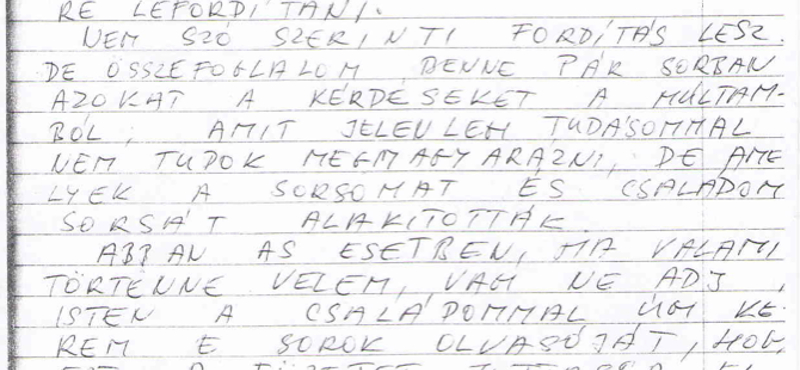 RE LEFORDÍTANI.
NEM SZÓ SZERINTI FORDÍTÁS LESZ.
DE ÖSSZEFOGLALOM BENNE PÁR SORBAN
AZOKAT A KÉRDÉSEKET A MÚLTAM-
BÓL, AMIT JELENLEM TUDÁSOMMAL
NEM TUDOK MEGMAGYARÁZNI, DE AME
LYEK A SORSOMAT ÉS CSALÁDOM
SORSÁT ALAKITOTTÁK
ABBAN AS ESETBEN, HA VALAMI
TÖRTÉNNE VELEM, VAGY NE ADJ
ISTEN A CSALÁDOMMAL ÚGY KÉ
REM E SOROK OLVASÓJÁT, HOGY
EZT A FÜZETET